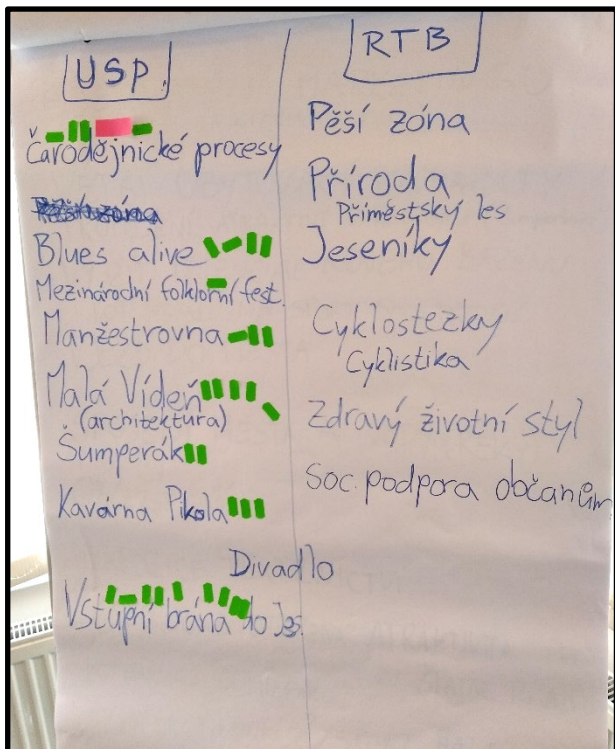 USP.
Čarodějnické procesy
Pěší zóna
Blues alive
Mezinárodní folklorní fest.
Manžestrovna
Malá Vídeň
(architektura)
Šumperák
Kavárna Pikola
Divadlo
Vstupní brána do Jes.
RTB
Pěší zóna
Příroda
Příměstský les
Jeseníky
Cyklostezky
Cyklistika
Zdravý životní styl
Soc. podpora občanům